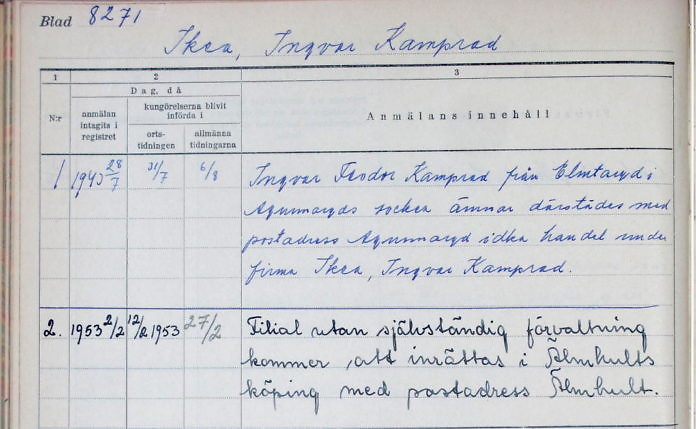 Blad 8271
Ikea, Ingvar Kamprad
1 2 3
N:r
Dag, då
anmälan intagits i registret
kungörelserna blivit införda i
orts-tidningen
allmänna tidningarna
Anmälans innehåll
1 1943 28/7 31/7 6/8 Ingvar Feodor Kamprad från Elmtaryd i
Agunnaryds socken ämnar därstädes med
postadress Agunnaryd idka handel under
firma Ikea, Ingvar Kamprad.
2. 1953 2/2 12/2 1953 27/2 Filial utan självständig förvaltning
kommer att inrättas i Älmhults
köping med postadress Älmhult.